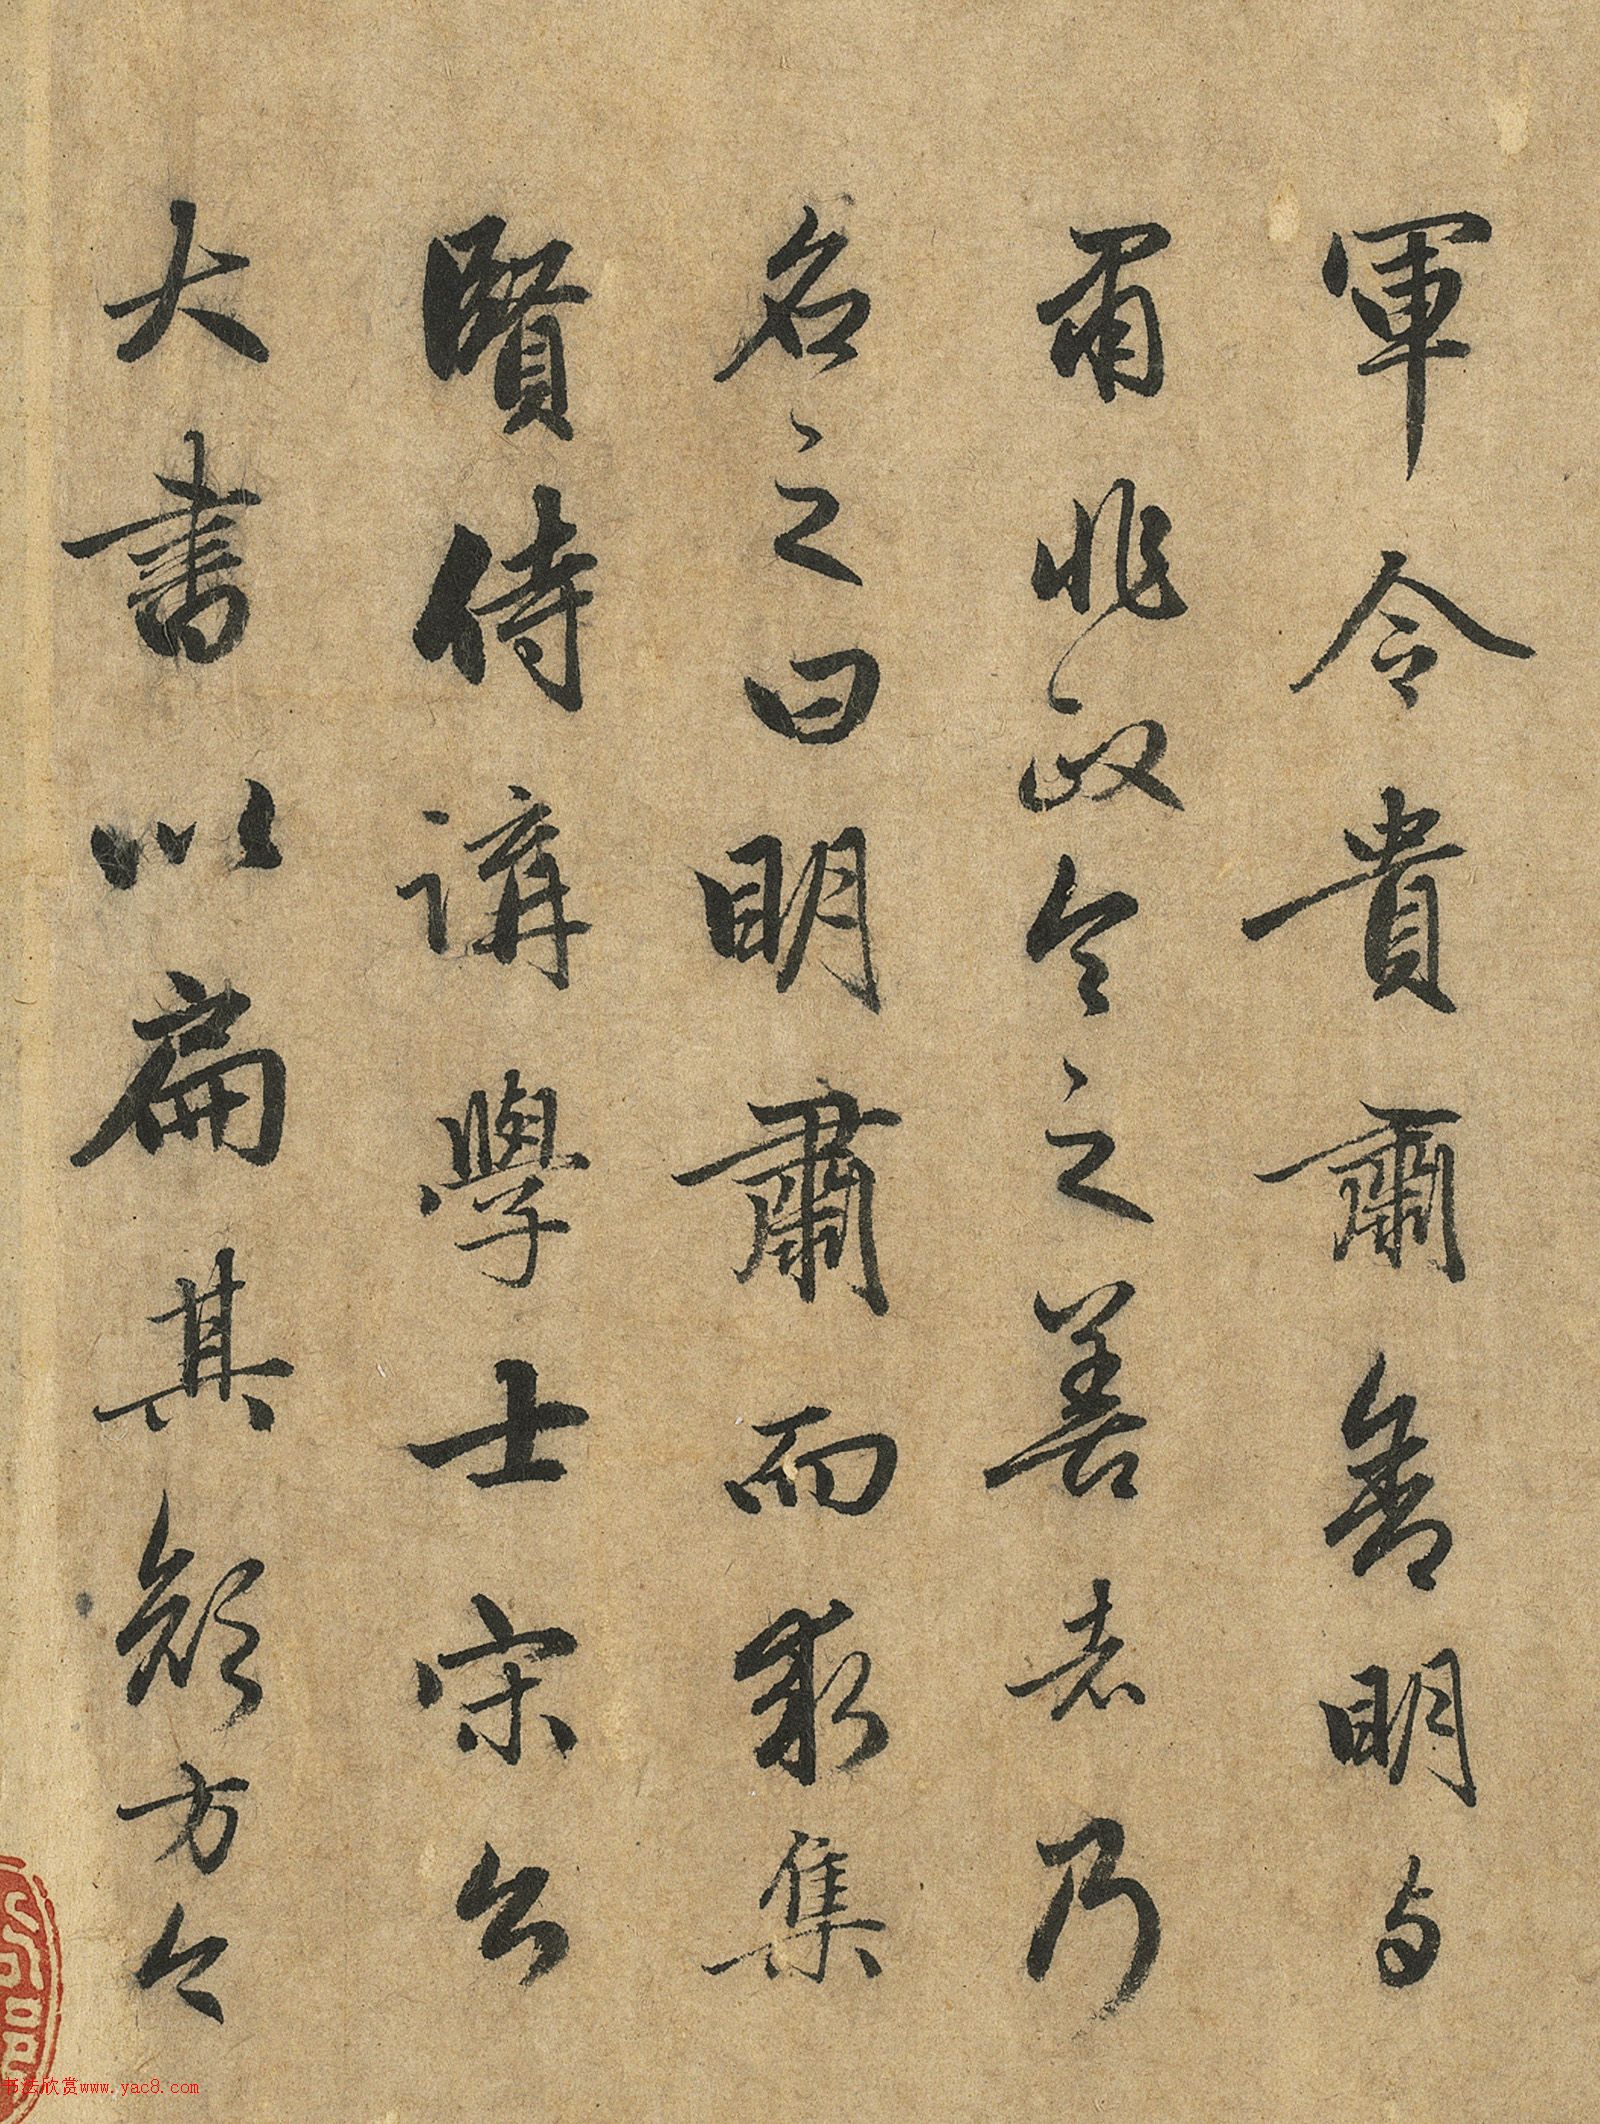 軍令貴肅舍明与
肅非政令之善者乃
名之曰明肅而求集
賢侍講學士宋公
大書以扁其顏方今
书法欣赏www.yac8.com